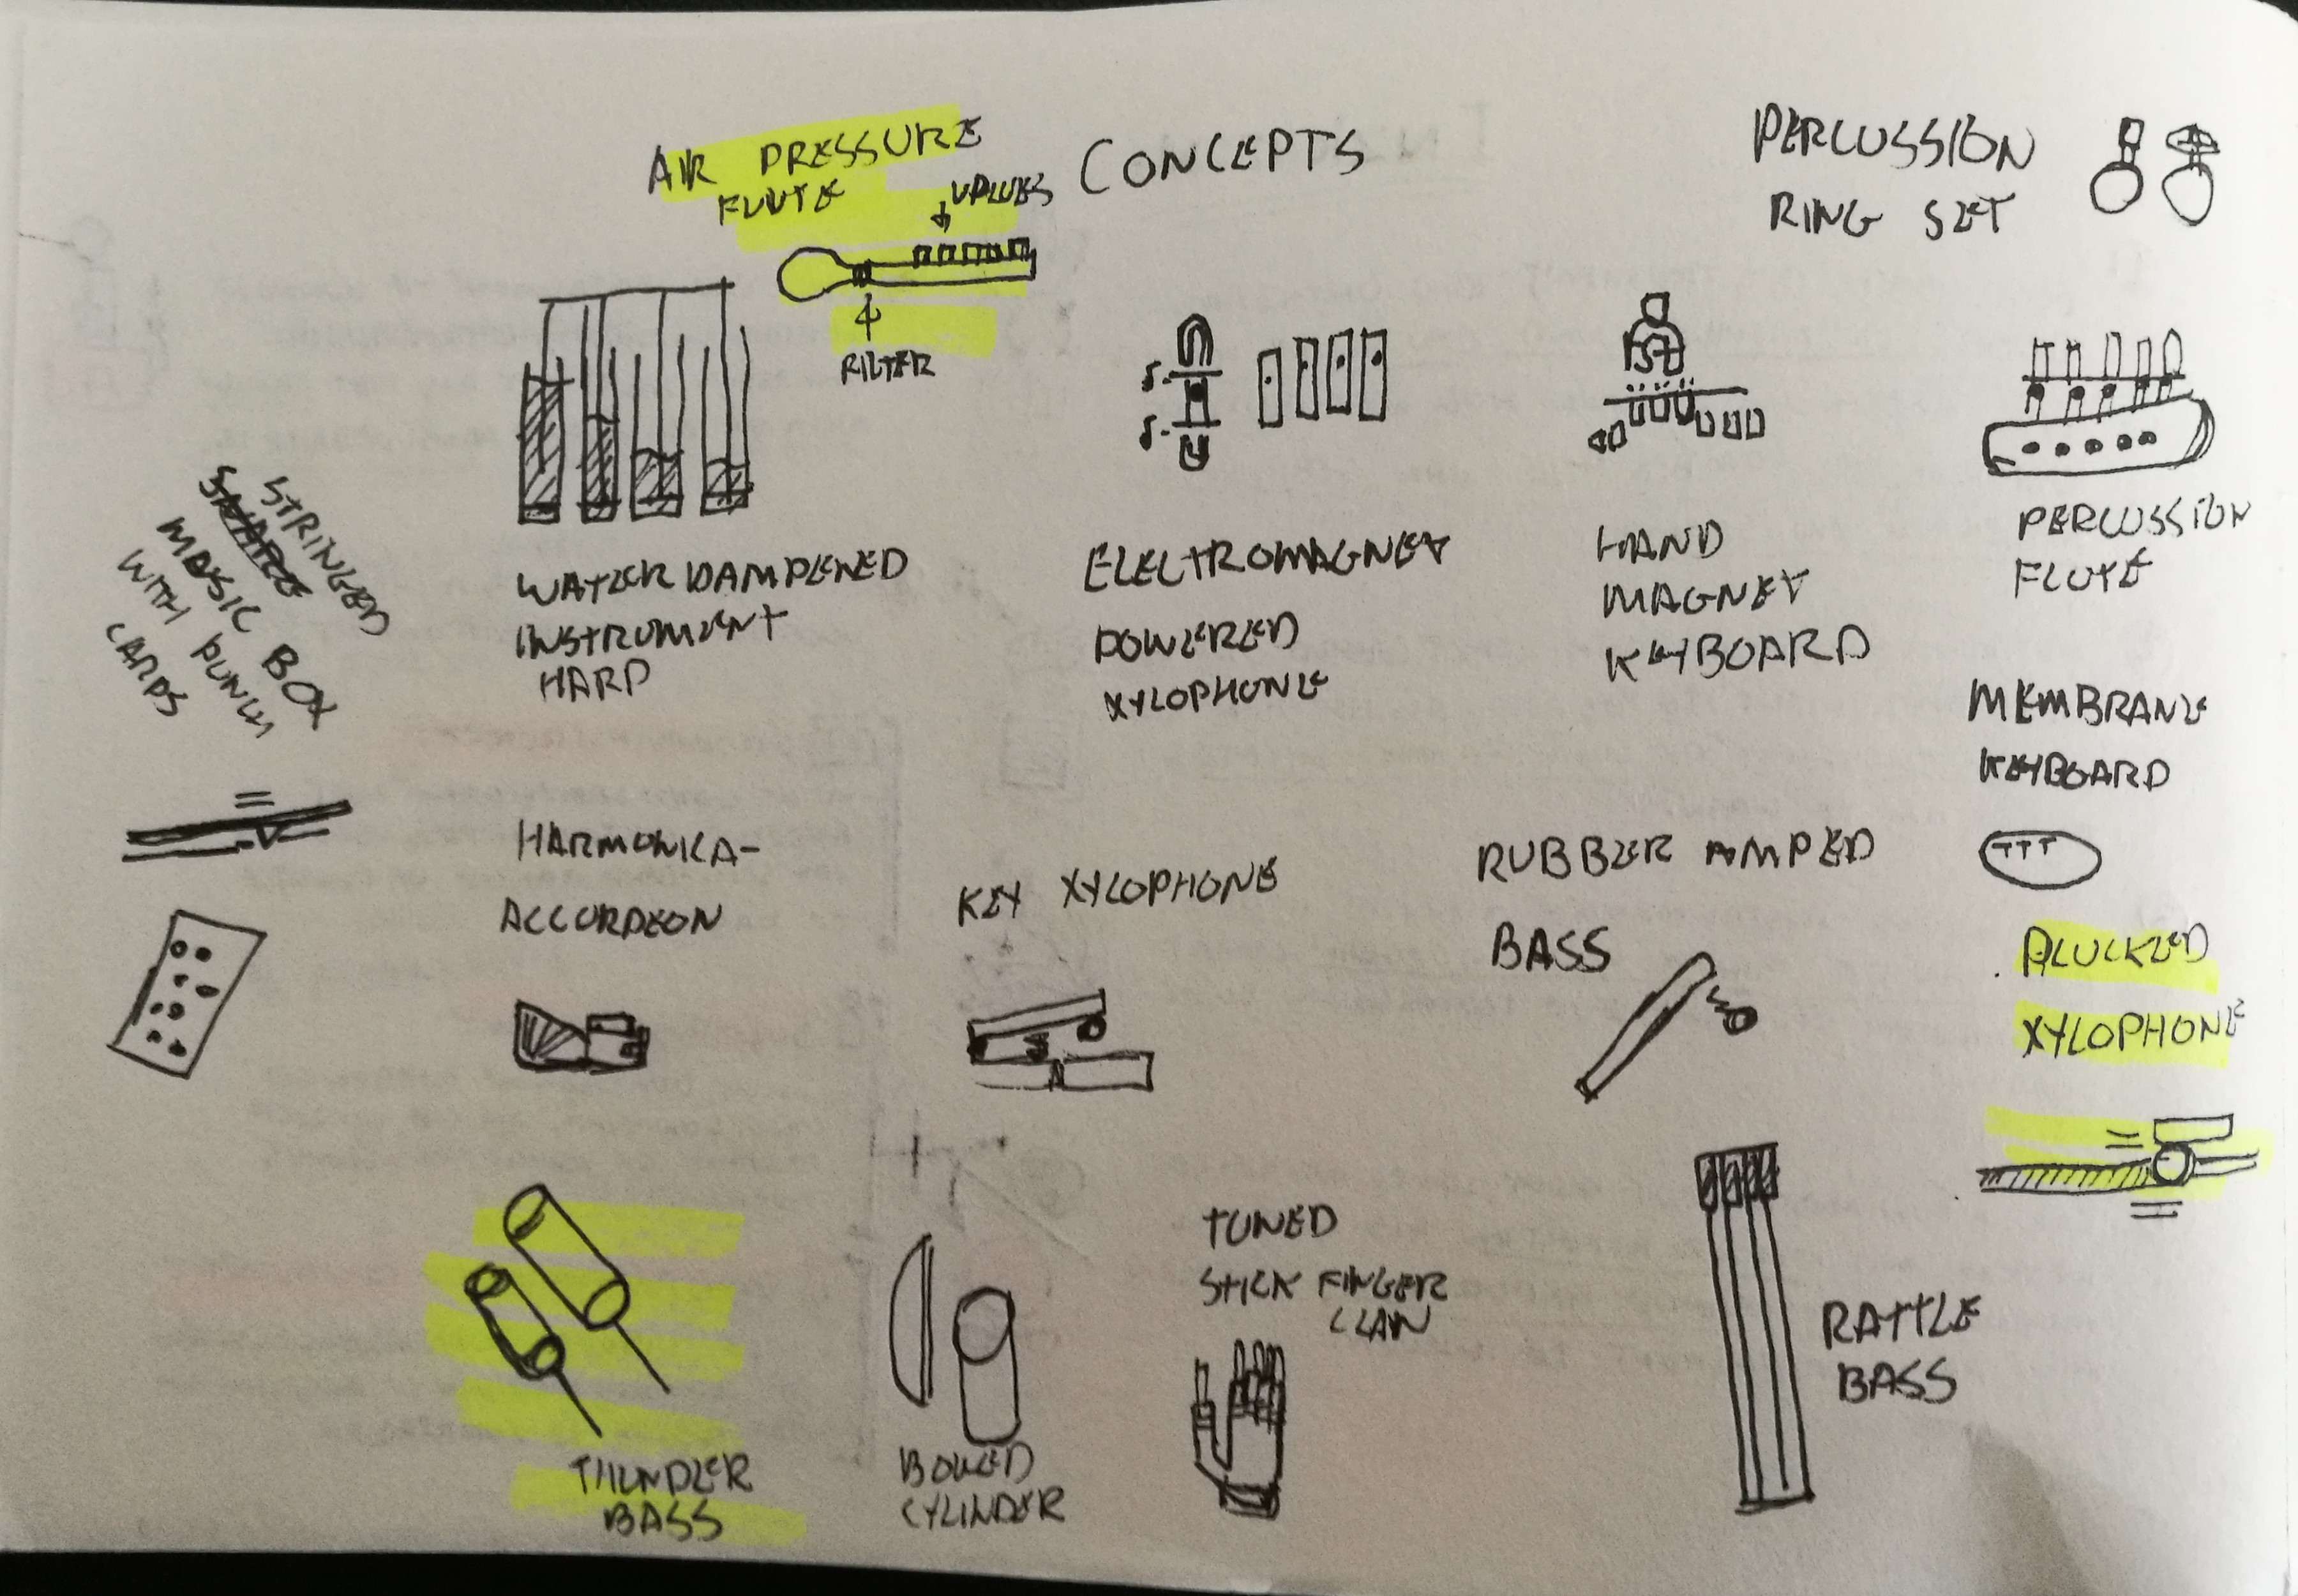 AIR PRESSURE
FLUTE
VALVES
FILTER
CONCEPTS
PERCUSSION
RING SET
STRINGED
MUSIC BOX
WITH PUNCH
CARDS
WATER DAMPENED
INSTRUMENT
HARP
ELECTROMAGNET
POWERED
XYLOPHONE
HAND
MAGNET
KEYBOARD
PERCUSSION
FLUTE
MEMBRANE
KEYBOARD
HARMONICA-
ACCORDEON
KEY XYLOPHONE
RUBBER AMPED
BASS
PLUCKED
XYLOPHONE
THUNDER
BASS
BOWED
CYLINDER
TUNED
STICK FINGER
CLAW
RATTLE
BASS